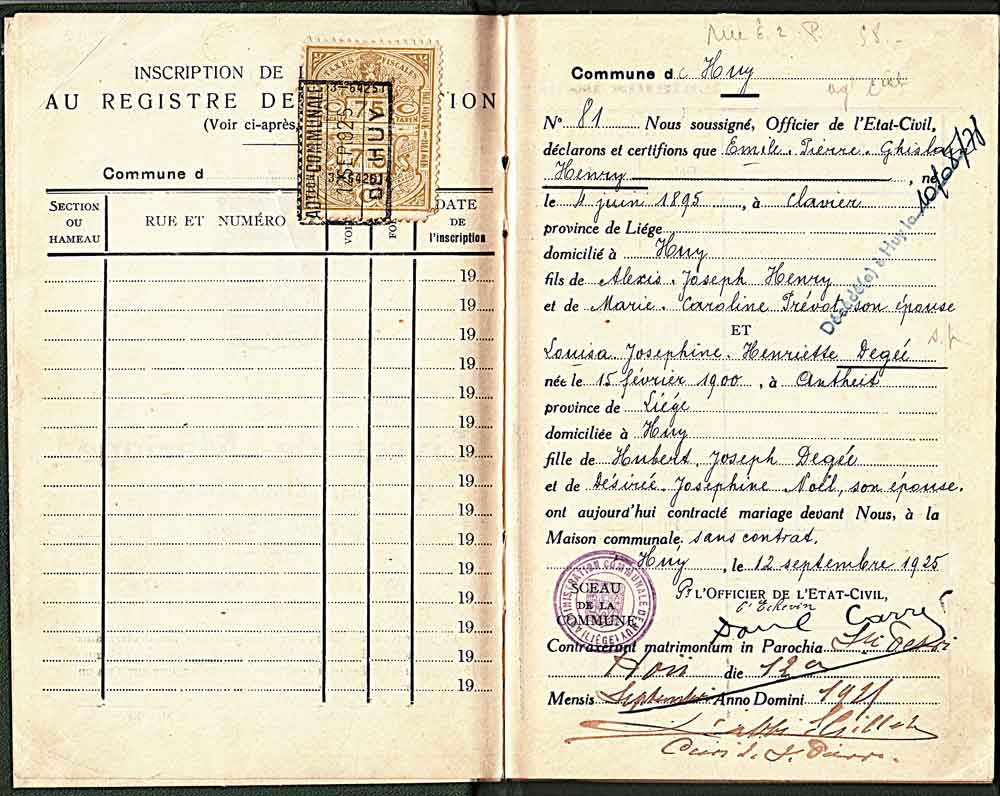 INSCRIPTION DE
AU REGISTRE DE ION
(Voir ci-après
Commune d
SECTION
OU
HAMEAU
RUE ET NUMÉRO
VOL
FO
DATE
DE
l'inscription
19
19
19
19
19
19
19
19
19
19
19
19
19
19
19
TAXES FISCALES
75
COMMUNALE
12 SEP 1925
A HUY
58.-
Commune de Huy
N° 81 Nous soussigné, Officier de l'Etat-Civil,
déclarons et certifions que Emile. Pierre. Ghislain
Henry, né
le 4 juin 1895, à Clavier
province de Liége
domicilié à Huy
fils de Alexis. Joseph Henry
et de Marie. Caroline Prévot, son épouse
ET
Louisa. Joséphine. Henriette Degée
née le 15 février 1900, à Antheit
province de Liége
domiciliée à Huy
fille de Hubert. Joseph Degée
et de Désirée. Joséphine Noël, son épouse.
ont aujourd'hui contracté mariage devant Nous, à la
Maison communale. sans contrat.
Huy, le 12 septembre 1925
Pr L'OFFICIER DE L'ETAT-CIVIL,
l'Echevin
ADMINISTRATION COMMUNALE DE HUY (LIÉGE)
SCEAU
DE LA
COMMUNE
Contraxerunt matrimonium in Parochia Sti Petri
die 12a
Mensis Septembris Anno Domini 1925
Décédé(e) à Huy, le 10/08/78